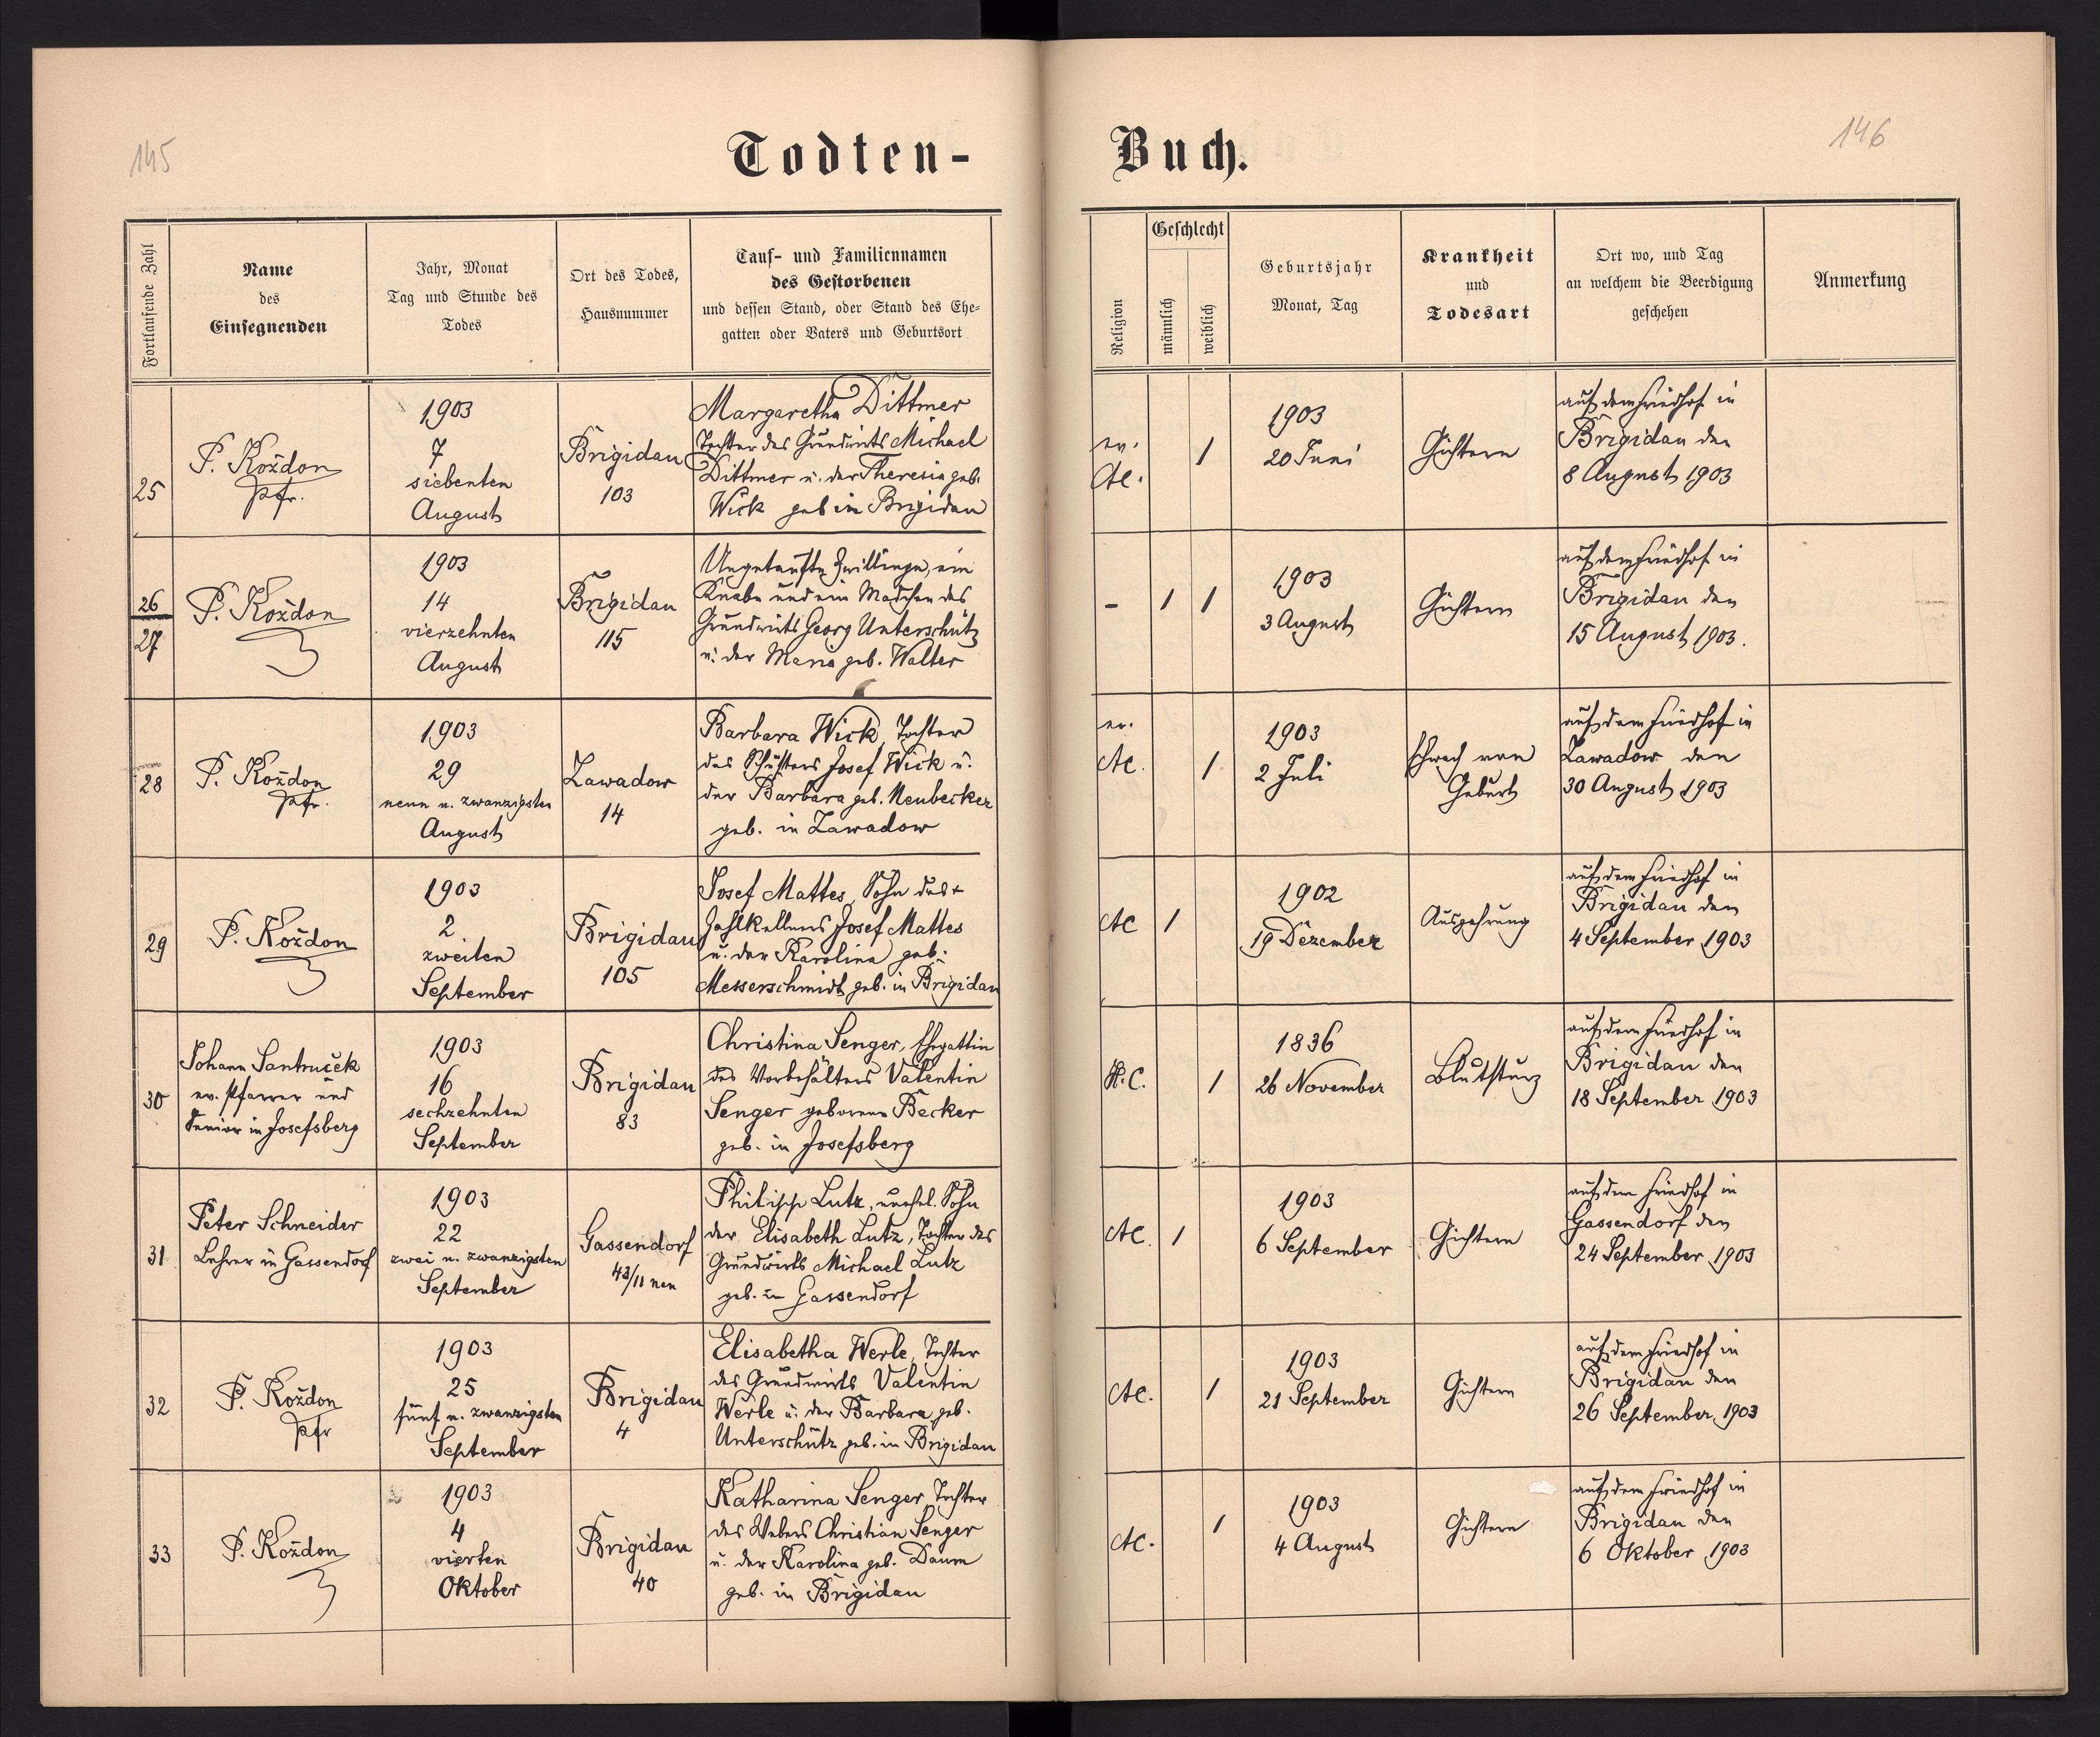 145
Todten-
Fortlaufende Zahl
Name
des
Einsegnenden
Jahr, Monat
Tag und Stunde des
Todes
Ort des Todes,
Hausnummer
Tauf- und Familiennamen
des Gestorbenen
und dessen Stand, oder Stand des Ehe-
gatten oder Vaters und Geburtsort
25
P. Koždon
Pfr.
1903
7
siebenten
August
Brigidau
103
Margaretha Dittmer
Tochter des Grundwirts Michael
Dittmer u. der Theresia geb.
Wick geb in Brigidau
26
27
P. Koždon
1903
14
vierzehnten
August
Brigidau
115
Ungetaufte Zwillinge, ein
Knabe und ein Mädchen des
Grundwirts Georg Unterschütz
u. der Maria geb. Walter
28
P. Koždon
Pfr.
1903
29
neun u. zwanzigsten
August
Zawadow
14
Barbara Wick, Tochter
des Schusters Josef Wick u.
der Barbara geb. Neubecker
geb. in Zawadow
29
P. Koždon
1903
2
zweiten
September
Brigidau
105
Josef Mattes, Sohn des +
Zahlkellners Josef Mattes
u. der Karolina geb.
Messerschmidt geb. in Brigidau
30
Johann Santruček
ev. Pfarrer und
Senior in Josefsberg
1903
16
sechzehnten
September
Brigidau
83
Christina Senger, Ehegattin
des Vorbehälters Valentin
Senger geborene Becker
geb. in Josefsberg
31
Peter Schneider
Lehrer in Gassendorf
1903
22
zwei u. zwanzigsten
September
Gassendorf
43/11 neu
Philipp Lutz, unehel. Sohn
der Elisabeth Lutz, Tochter des
Grundwirts Michael Lutz
geb. in Gassendorf
32
P. Koždon
Pfr
1903
25
fünf u. zwanzigsten
September
Brigidau
4
Elisabetha Werle, Tochter
des Grundwirts Valentin
Werle u. der Barbara geb.
Unterschütz geb. in Brigidau
33
P. Koždon
1903
4
vierten
Oktober
Brigidau
40
Katharina Senger, Tochter
des Webers Christian Senger
u. der Karolina geb. Daum
geb. in Brigidau
146
Buch.
Religion
Geschlecht
männlich
weiblich
Geburtsjahr
Monat, Tag
Krankheit
und
Todesart
Ort wo, und Tag
an welchem die Beerdigung
geschehen
Anmerkung
ev.
AC.
1
1903
20 Juni
Gichtern
auf dem Friedhof in
Brigidau den
8 August 1903
-
1
1
1903
3 August
Gichtern
auf dem Friedhof in
Brigidau den
15 August 1903.
ev.
AC.
1
1903
2 Juli
schwach von
Geburt
auf dem Friedhof in
Zawadow den
30 August 1903
AC
1
1902
19 Dezember
Auszehrung
auf dem Friedhof in
Brigidau den
4 September 1903
H.C.
1
1836
26 November
Blutsturz
auf dem Friedhof in
Brigidau den
18 September 1903
AC.
1
1903
6 September
Gichtern
auf dem Friedhof in
Gassendorf den
24 September 1903
AC.
1
1903
21 September
Gichtern
auf dem Friedhof in
Brigidau den
26 September 1903
AC.
1
1903
4 August
Gichtern
auf dem Friedhof in
Brigidau den
6 Oktober 1903